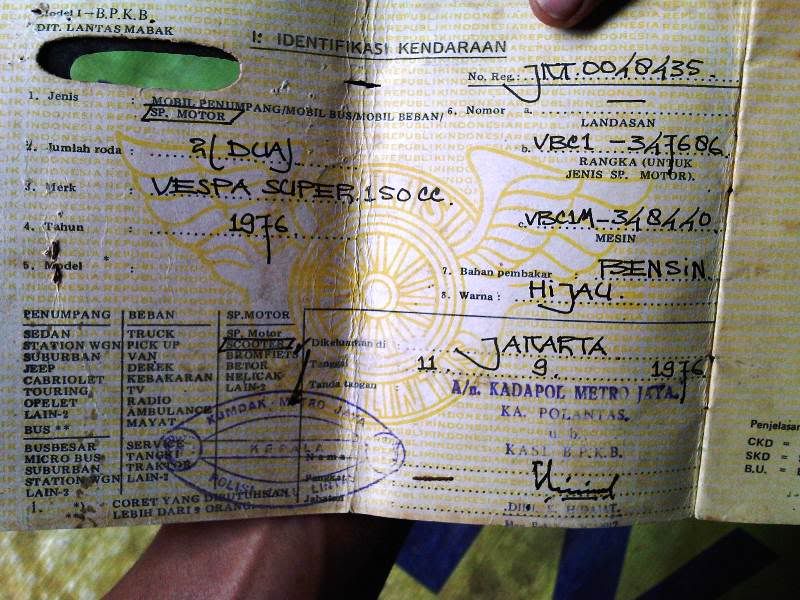 Model I - B.P.K.B.
DIT. LANTAS MABAK
I: IDENTIFIKASI KENDARAAN
No. Reg:
1. Jenis : MOBIL PENUMPANG/MOBIL BUS/MOBIL BEBAN/
SP. MOTOR
2. Jumlah roda : 2 (DUA)
3. Merk : VESPA SUPER 150 CC.
4. Tahun : 1976
5. Model * :
6. Nomor a. —
LANDASAN
b. VBC1
RANGKA (UNTUK
JENIS SP. MOTOR).
c. VBC1M
MESIN
7. Bahan pembakar : BENSIN
8. Warna : HIJAU
PENUMPANG BEBAN SP.MOTOR
SEDAN TRUCK SP. Motor
STATION WGN PICK UP SCOOTER
SUBURBAN VAN BROMFIETS
JEEP DEREK BETOR
CABRIOLET KEBAKARAN HELICAK
TOURING TV LAIN-2
OPELET RADIO
LAIN-2 AMBULANCE
BUS ** MAYAT
BUSBESAR SERVICE
MICRO BUS TANGKI
SUBURBAN TRAKTOR
STATION WGN LAIN-2
LAIN-2
CORET YANG DIBUTUHKAN
LEBIH DARI 9 ORANG
Dikeluarkan di : JAKARTA
Tanggal 11 9. 1976
Tanda tangan :
A/n. KADAPOL METRO JAYA.
KA. POLANTAS.
u.b.
KASI B.P.K.B.
Nama
Pangkat
Jabatan
KOMDAK METRO JAYA
KEPALA
POLISI
Penjelasan
CKD =
SKD =
B.U. =